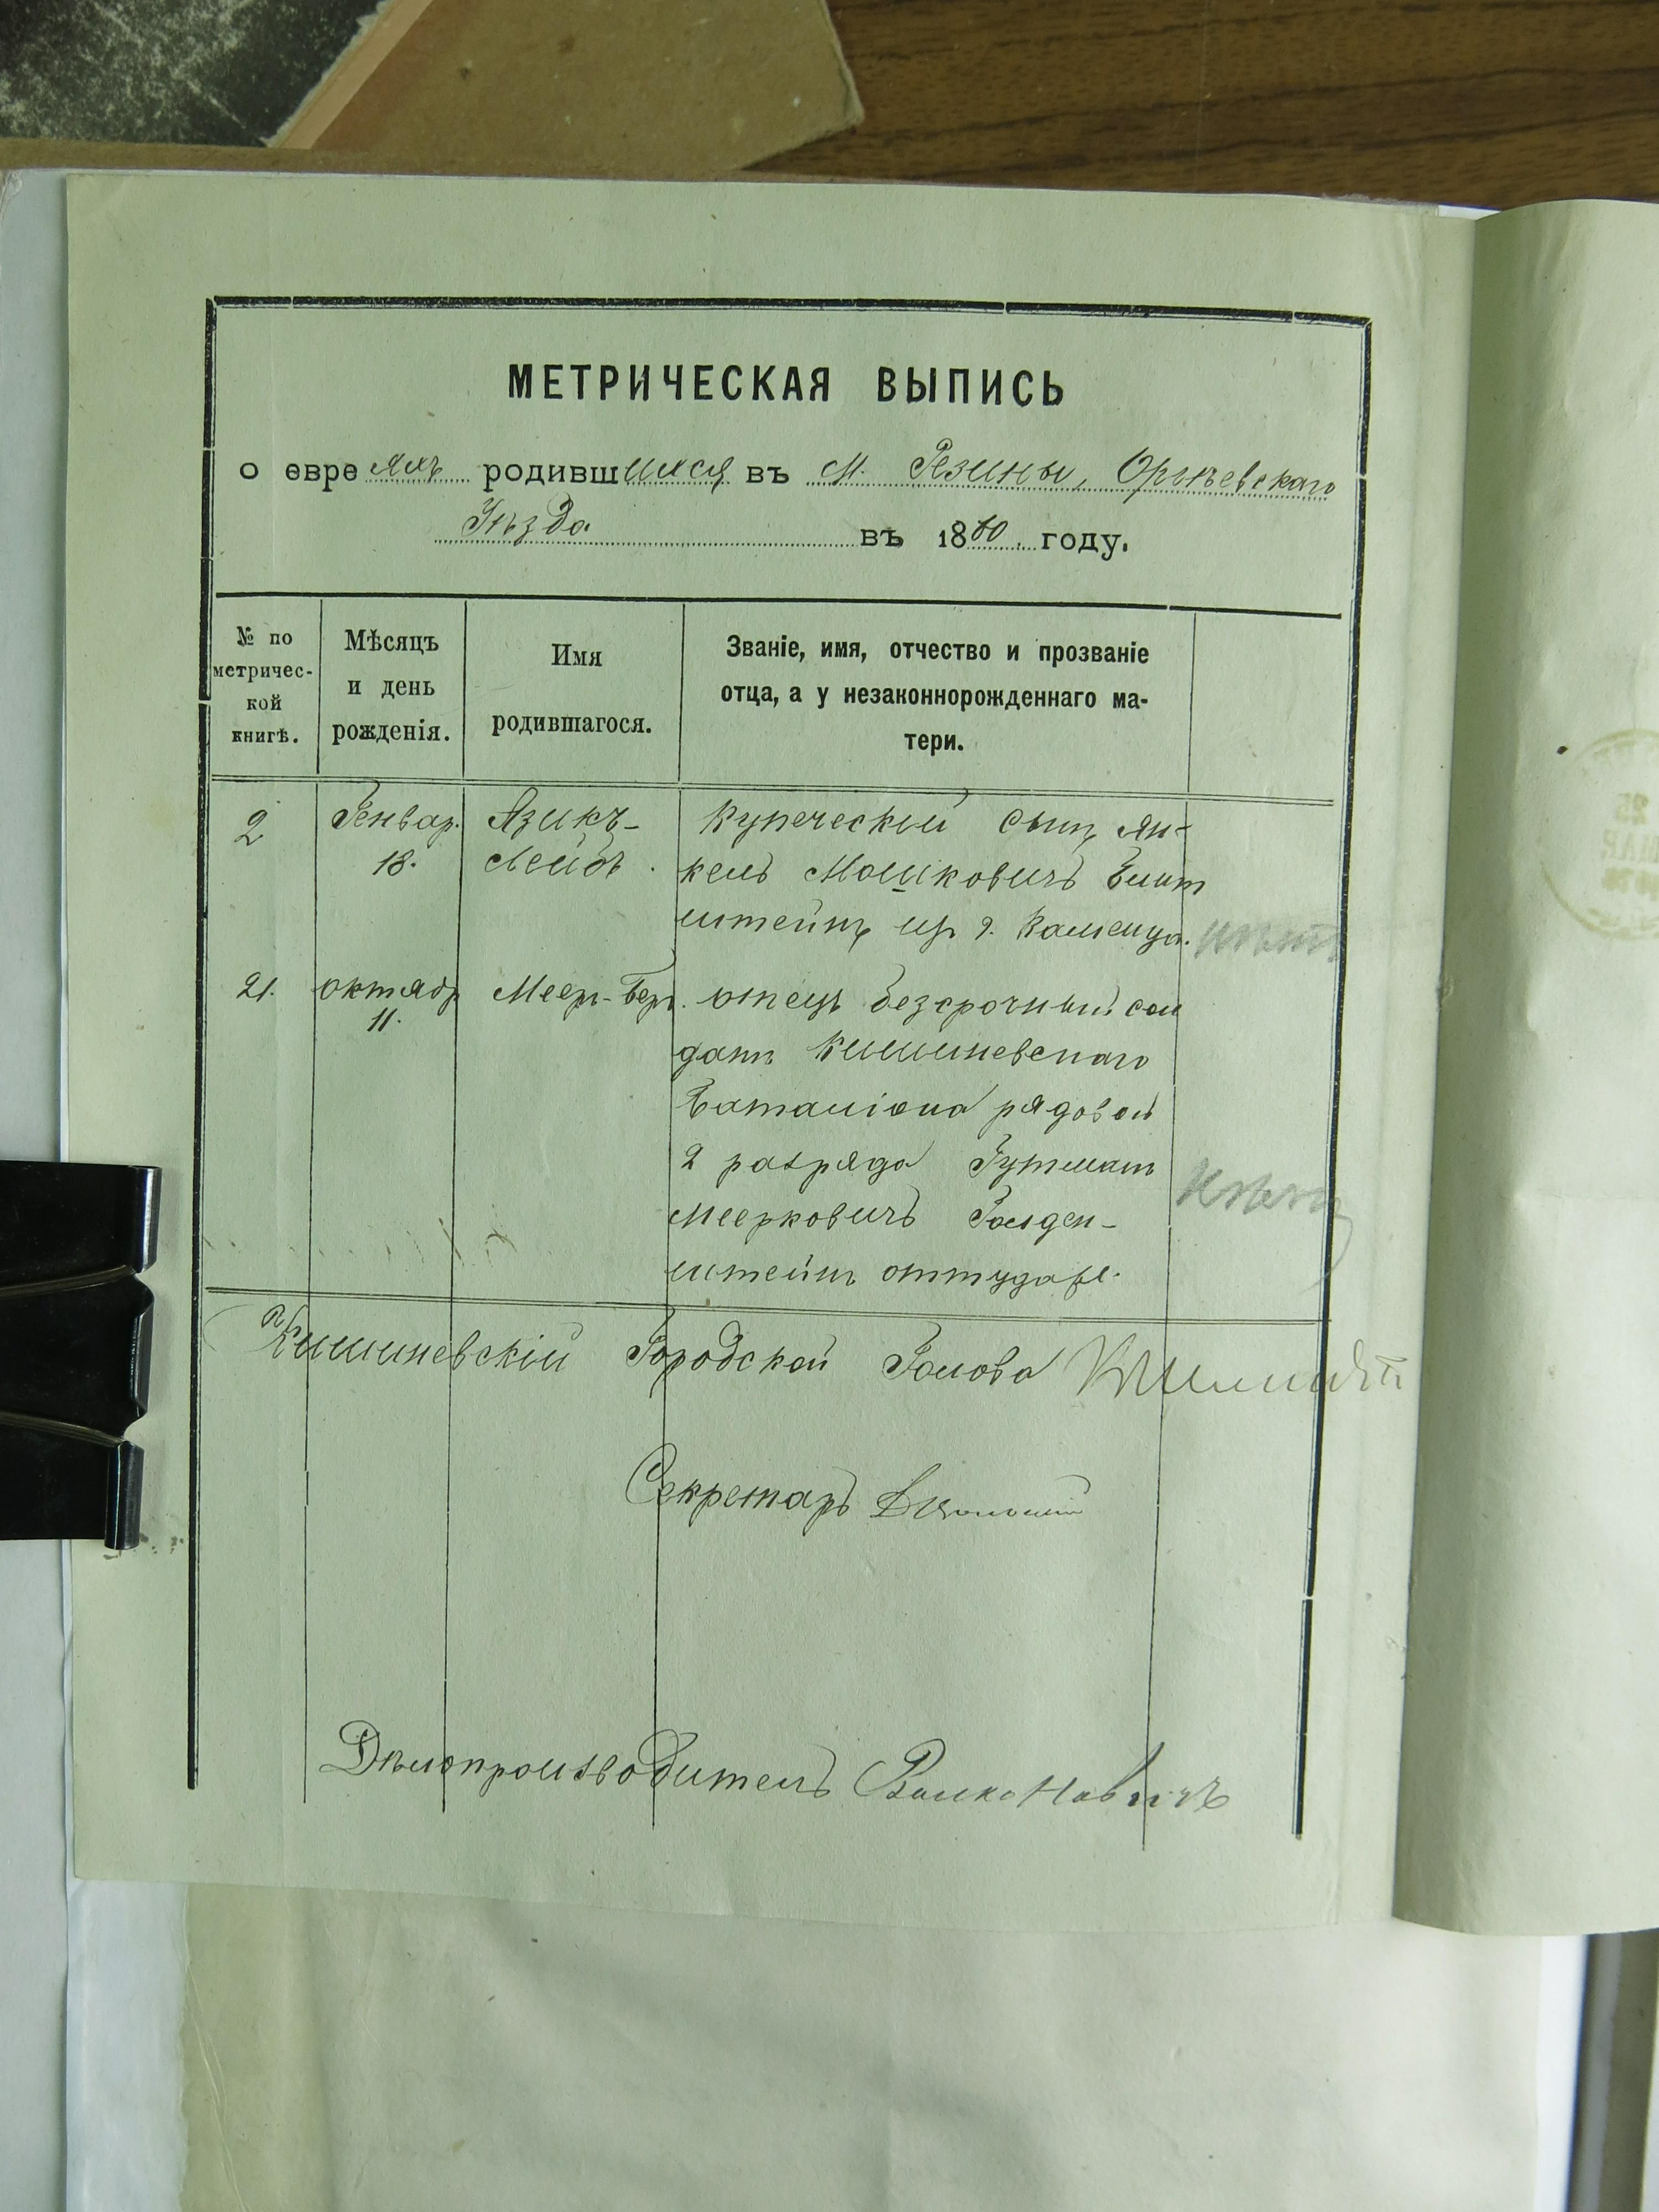 МЕТРИЧЕСКАЯ ВЫПИСЬ
о евреяхъ родившихся въ м. Резины, Оргѣевскаго
Уѣзда въ 1860 году.
№ по метричес-кой книгѣ.
Мѣсяцъ и день рожденія.
Имя родившагося.
Званіе, имя, отчество и прозваніе отца, а у незаконнорожденнаго ма-тери.
2 Генвар. Азикъ- Купеческій сынъ Ян-
18. Лейбъ. кель Мошковичъ
штейнъ изъ г. Каменца. нѣтъ
21. октябр Меер-Бер. отецъ безсрочный сол
11. датъ Кишиневскаго
Баталіона рядовой
2 разряда Гутман
Меерковичъ Голден-
штейнъ оттуда же. нѣтъ
Кишиневскій Городской Голова
Секретарь
Дѣлопроизводитель